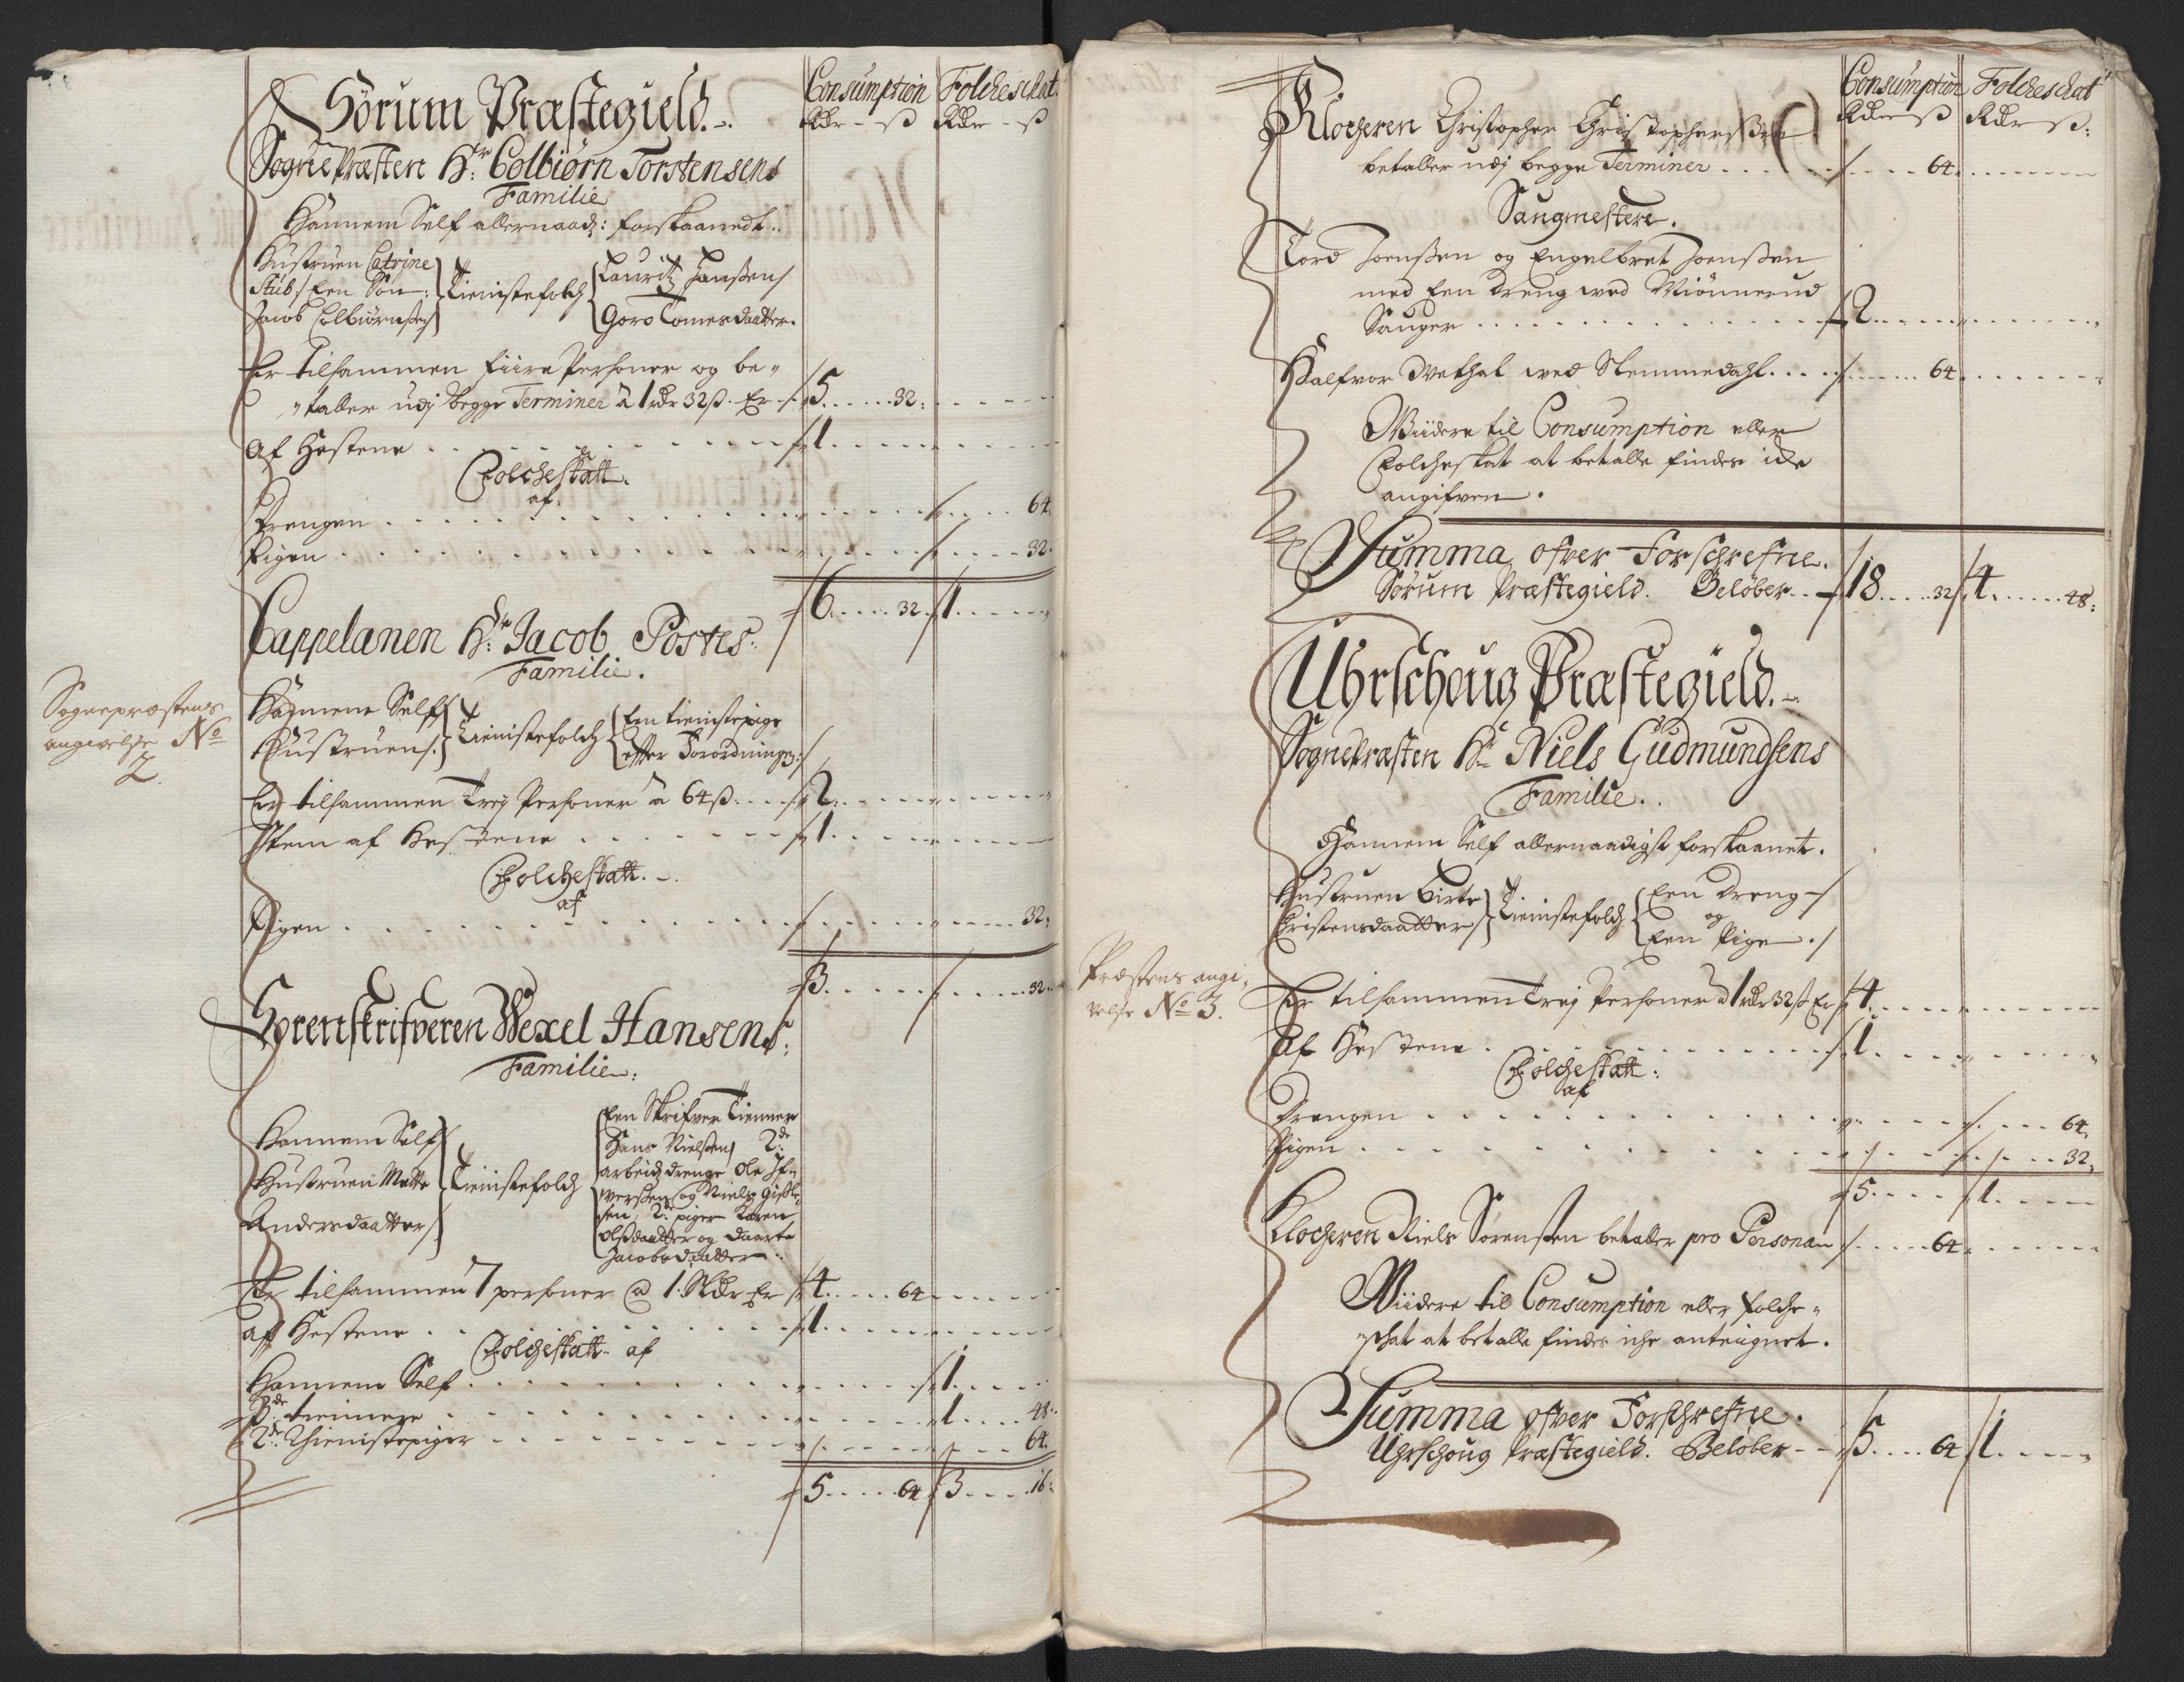 Consumption Folcheschat.
Rdr - ß Rdr - ß
Sørum Præstegield.
SognePræsten Hr: Colbiørn Torstensens
Familie
Hannem Self allernaad: forskaanedt..
Hustruen Catrine
Stub/ Een Søn:
Jacob Colbiørnsen/
Tienistefolch
Lauritz Hansen/
Goro Tomesdaatter.
Er tilsammen fiire Personer og be"
"taller udj begge Terminer a 1 rdr 32 ß. Er 5 . . . 32.
Af Hestene . . . 1 . . .
Folcheskatt.
af.
Drengen . . . 64.
Pigen . . . 32.
6 . . . 32. 1 . . .
Cappelanen Hr: Jacob Postes.
Familie.
Sognepræstens
angivelse No
2.
Hannem Self/
Hustruen/.
Tienistefolch
Een tienistepige
efter Forordningen:/
Er tilsammen Trej Personer a 64 ß. . . 2 . . .
Item af Hestene . . . 1 . . .
Folcheskatt.
af
Pigen . . . 32.
3 . . . 32.
Sorenskrifveren Wexel Hansens.
Familie.
Hannem Self/
Hustruen Mette
Andersdaatter/
Tienistefolch
Een Skrifver Tienner
Hans Nielsen/ 2de
arbeidz drenge Ole If=
versen og Niels Gisle=
sen, 2de piger Karen
Olsdaatter og Daarte
Jacobsdaatter.
Er tilsammen 7 personer a 1. Rdr Er 4 . . . 64
af Hestene . . . 1 . . .
Folcheskatt. af
Hannem Self . . . 1 . . .
3de tienniere . . . 1 . . . 48.
2de Thienistepiger . . . 64.
5 . . . 64 3 . . . 16.
Consumption Folcheschat
Rdr ß Rdr ß.
Klocheren Christopher Christophersen
betaller udj begge Terminer . . . 64.
Saugmestere.
Tord Joensen og Engelbret Joensen
med Een Dreng ved Miønnerud
Sauger . . . 2 . . .
Halfvor Vethal ved Slemmedahl . . . 64.
Viidere til Consumption eller
Folcheskat at betalle findes icke
angifven.
Summa ofver Forschrefne.
Sørum Præstegield. Beløber - 18 . . . 32 4 . . . 48.
Uhrschoug Præstegield.
SognePræsten Hr Niels Gudmundsens
Familie.
Hannem Self allernaadigst forskaanet.
Hustruen Birte
Christensdaatter/
Tienistefolch
Een Dreng -/
og
Een Pige ./
Præstens angi=
velse No 3.
Er tilsammen Trej Personer a 1 rdr 32 ß Er 4 . . .
Af Hestene . . . 1 . . .
Folcheskatt:
af
Drengen . . . 64.
Pigen . . . 32.
5 . . . 1 . . .
Klocheren Niels Sørensen betaller pro Persona . . . 64
Viidere til Consumption eller folche=
"schat at betalle findes iche anteignet.
Summa ofver Forschrefne.
Uhrschoug Præstegield. Beløber - - 5 . . . 64 1 . . .